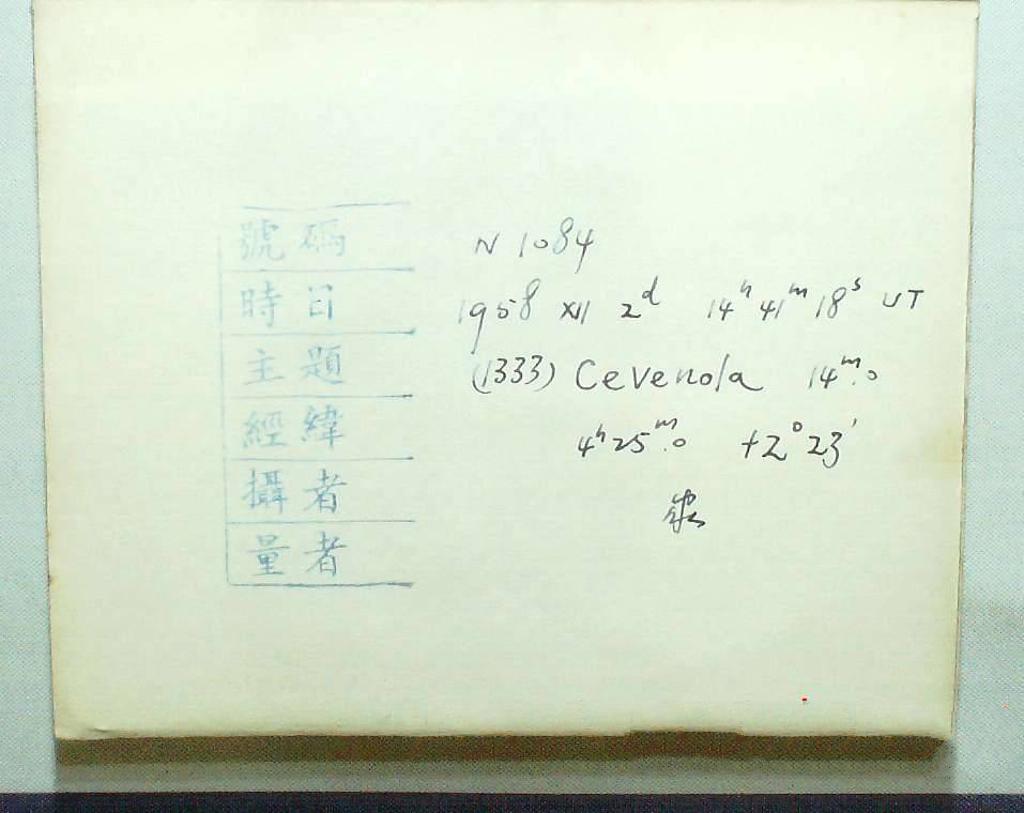 號碼 N 1084
時日 1958 XII 2ᵈ 14ʰ 41ᵐ 18ˢ UT
主題 (1333) Cevenola 14ᵐ.0
經緯 4ʰ 25ᵐ.0 +2° 23'
攝者
量者